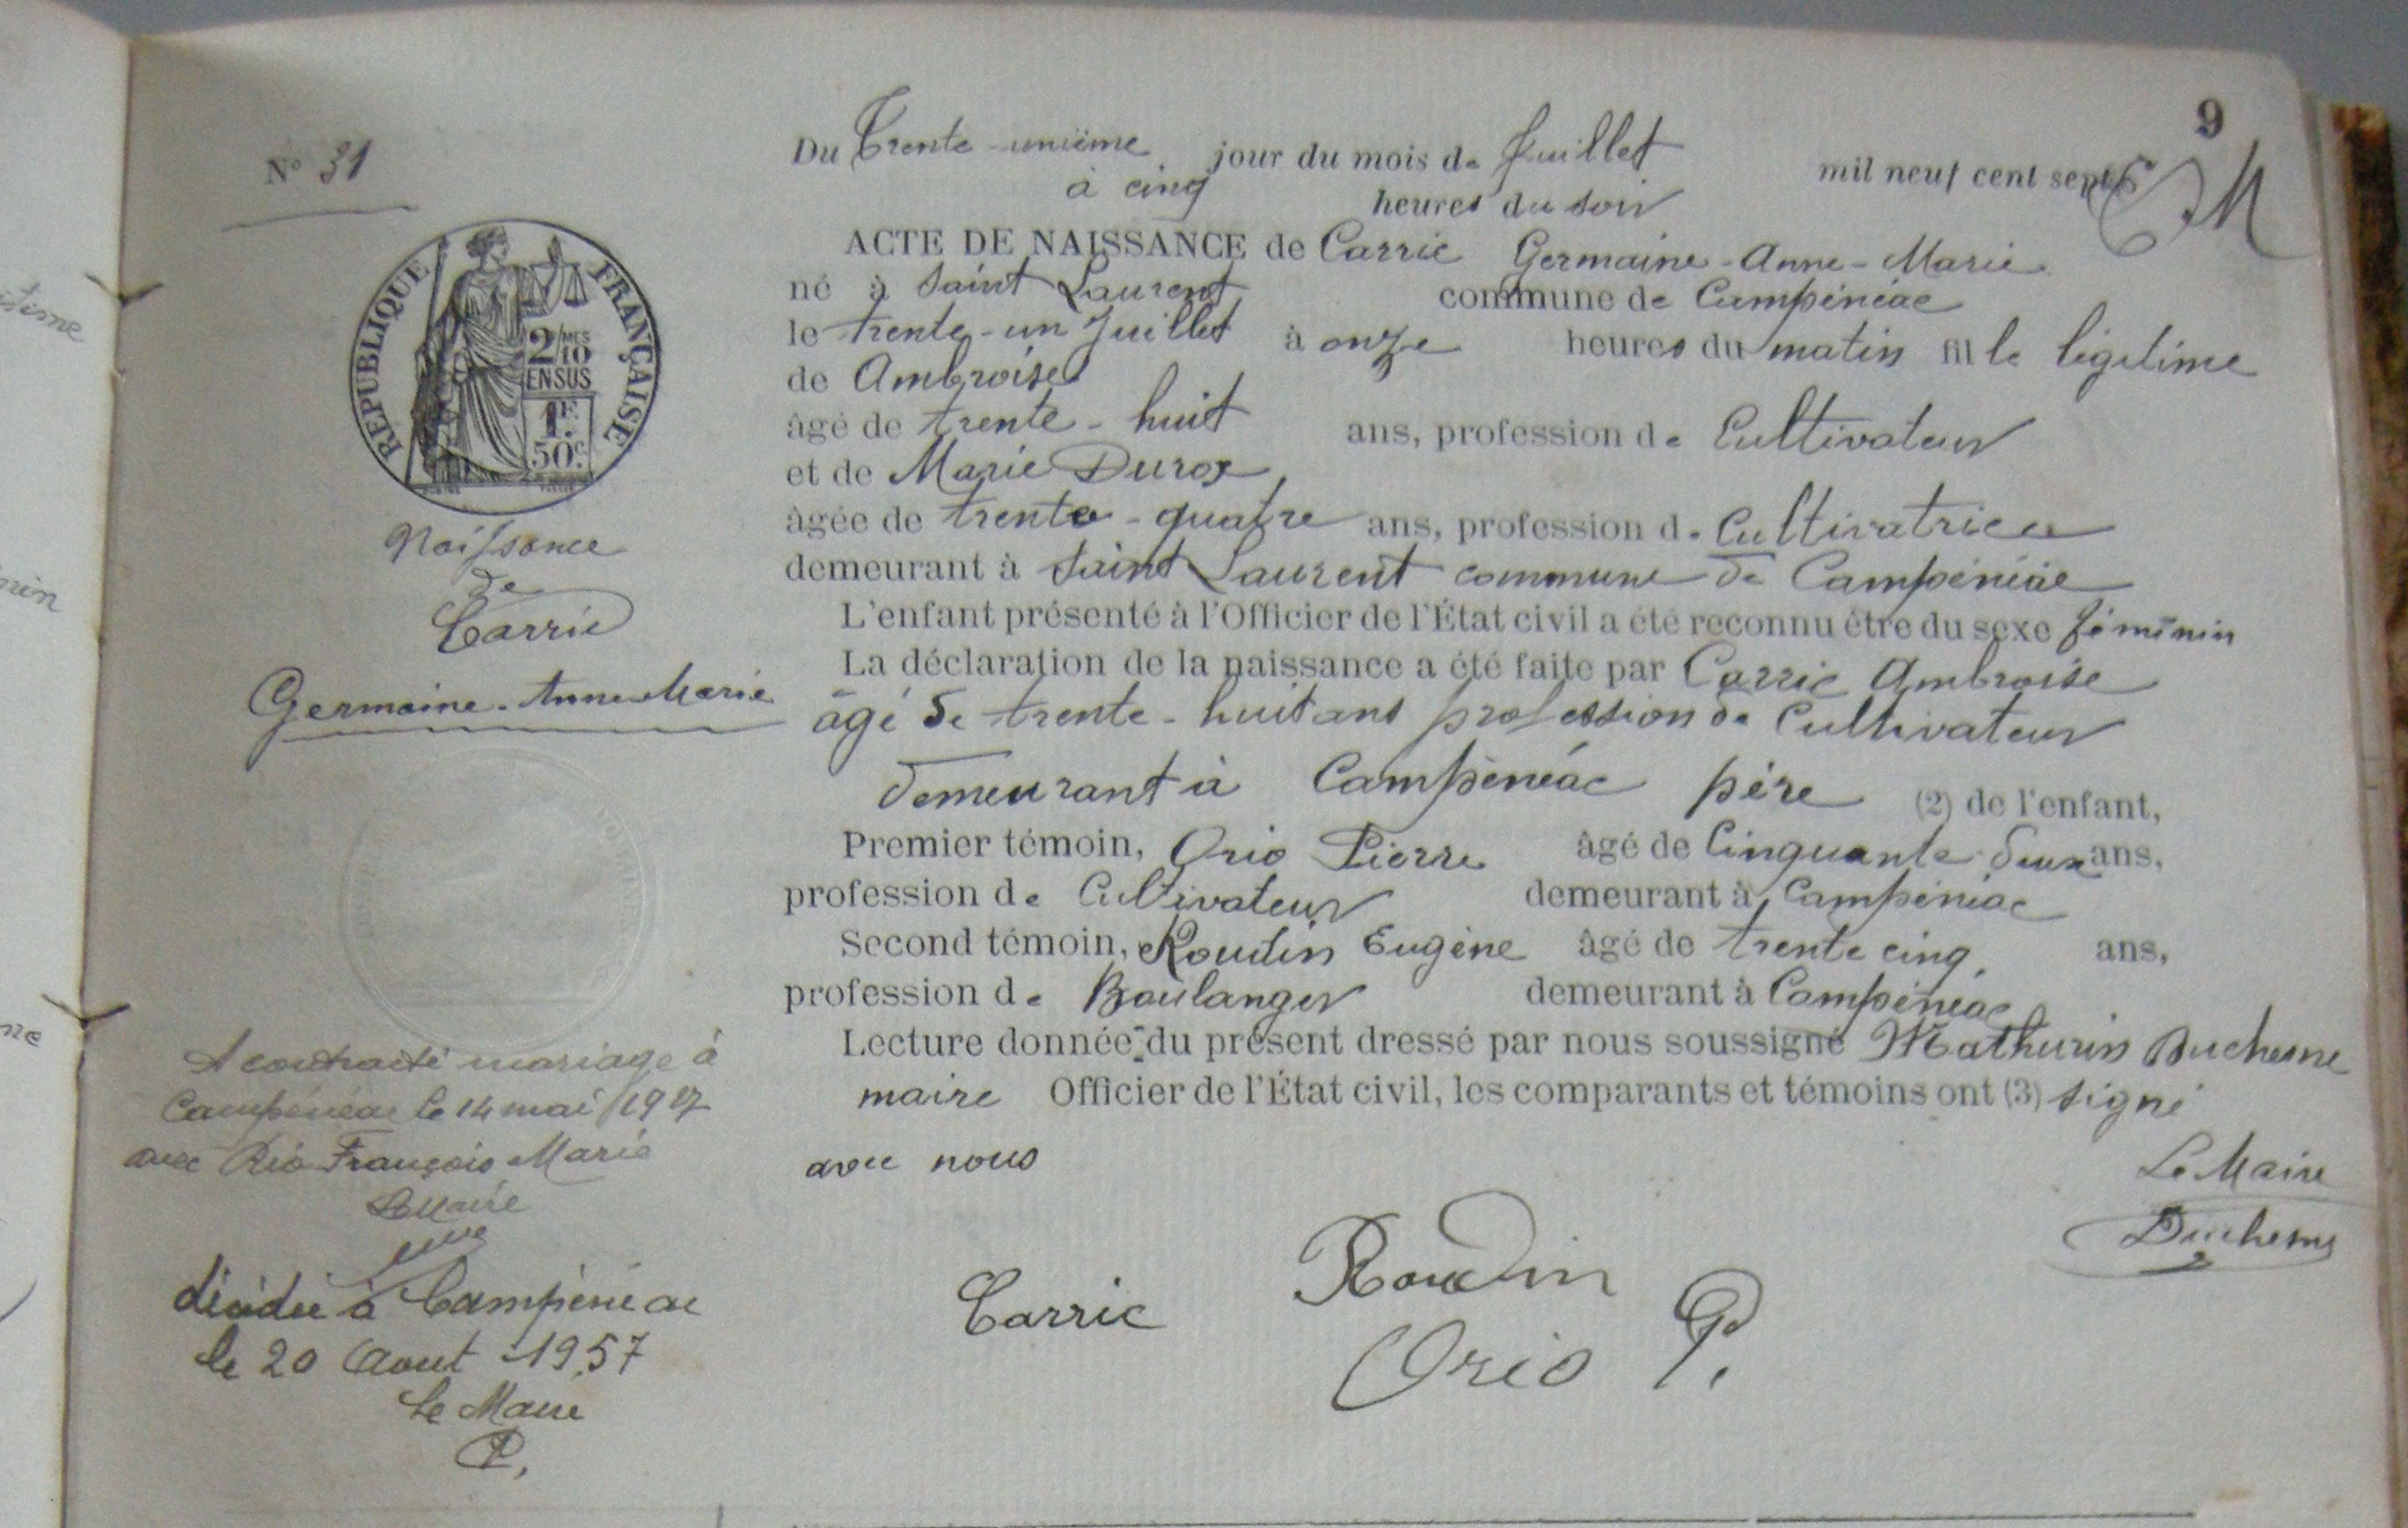 9
N° 31
Du Trente-unième jour du mois de Juillet mil neuf cent sept
à cinq heures du soir
ACTE DE NAISSANCE de Carric Germaine-Anne-Marie
né à Saint Laurent commune de Campénéac
le trente-un Juillet à onze heures du matin fille légitime
de Ambroise
âgé de trente-huit ans, profession de Cultivateur
et de Marie Durox
âgée de trente-quatre ans, profession de Cultivatrice
demeurant à Saint Laurent commune de Campénéac
L'enfant présenté à l'Officier de l'État civil a été reconnu être du sexe féminin
La déclaration de la naissance a été faite par Carric Ambroise
âgé de trente-huit ans profession de Cultivateur
demeurant à Campénéac père (2) de l'enfant,
Premier témoin, Orio Pierre âgé de Cinquante deux ans,
profession de Cultivateur demeurant à Campénéac
Second témoin, Roudin Eugène âgé de trente cinq ans,
profession de Boulanger demeurant à Campénéac
Lecture donnée du présent dressé par nous soussigné Mathurin Duchesne
maire Officier de l'État civil, les comparants et témoins ont (3) signé
avec nous
Le Maire
Duchesne
Carric
Roudin
Orio P.
REPUBLIQUE FRANÇAISE
2/MES 10
EN SUS
1F.
50c
Naissance
de
Carric
Germaine-Anne-Marie
A contracté mariage à
Campénéac le 14 mai
avec Rio François Marie
Le Maire
décédée à Campénéac
le 20 Aout 1957
Le Maire